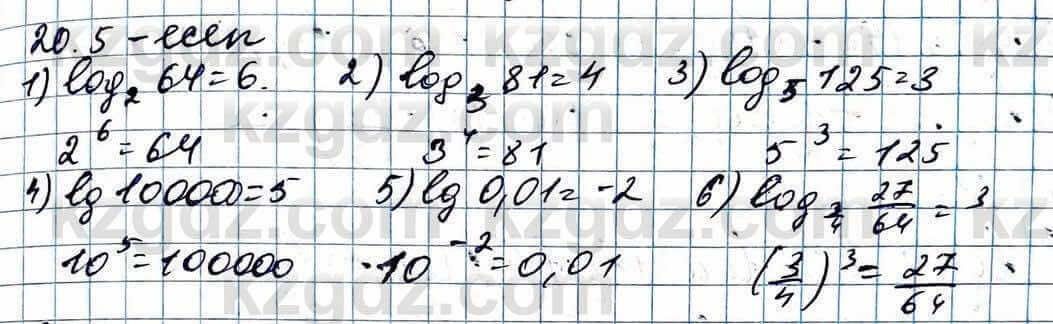 20.5-есеп
1) log₂ 64=6. 2) log₃ 81=4 3) log₅ 125=3
2⁶=64 3⁴=81 5³=125
4) lg 100000=5 5) lg 0,01=-2 6) log_3/4 27/64=3
10⁵=100000 10⁻²=0,01 (3/4)³=27/64
kzgdz.com